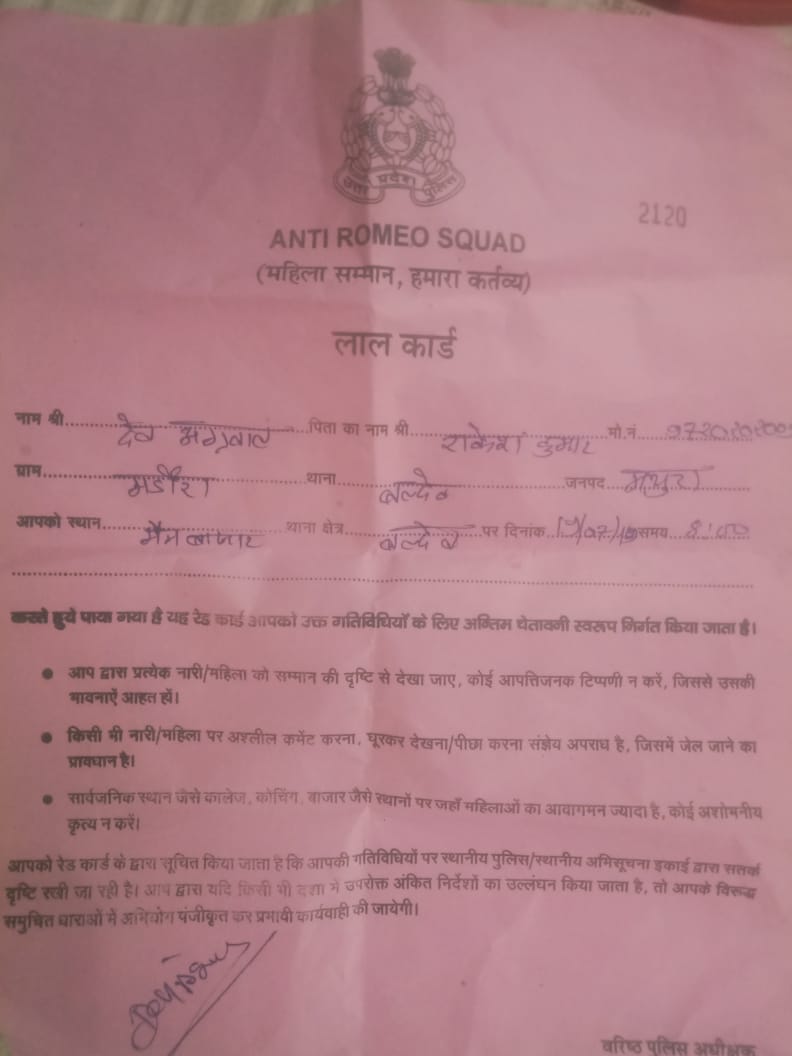 उत्तर प्रदेश पुलिस
2120
ANTI ROMEO SQUAD
(महिला सम्मान, हमारा कर्तव्य)
लाल कार्ड
नाम श्री देव अग्रवाल पिता का नाम श्री राकेश कुमार मो.नं.
ग्राम मडौरा थाना बल्देव जनपद मथुरा
आपको स्थान मैन बाजार थाना क्षेत्र बल्देव पर दिनांक समय 8:00
करते हुये पाया गया है यह रेड कार्ड आपको उक्त गतिविधियों के लिए अन्तिम चेतावनी स्वरूप निर्गत किया जाता है।
● आप द्वारा प्रत्येक नारी/महिला को सम्मान की दृष्टि से देखा जाए, कोई आपत्तिजनक टिप्पणी न करें, जिससे उसकी
भावनाऐं आहत हों।
● किसी भी नारी/महिला पर अश्लील कमेंट करना, घूरकर देखना/पीछा करना संज्ञेय अपराध है, जिसमें जेल जाने का
प्रावधान है।
● सार्वजनिक स्थान जैसे कालेज, कोचिंग, बाजार जैसे स्थानों पर जहाँ महिलाओं का आवागमन ज्यादा है, कोई अशोभनीय
कृत्य न करें।
आपको रेड कार्ड के द्वारा सूचित किया जाता है कि आपकी गतिविधियों पर स्थानीय पुलिस/स्थानीय अभिसूचना इकाई द्वारा सतर्क
दृष्टि रखी जा रही है। आप द्वारा यदि किसी भी दशा में उपरोक्त अंकित निर्देशों का उल्लंघन किया जाता है, तो आपके विरूद्ध
समुचित धाराओं में अभियोग पंजीकृत कर प्रभावी कार्यवाही की जायेगी।
वरिष्ठ पुलिस अधीक्षक